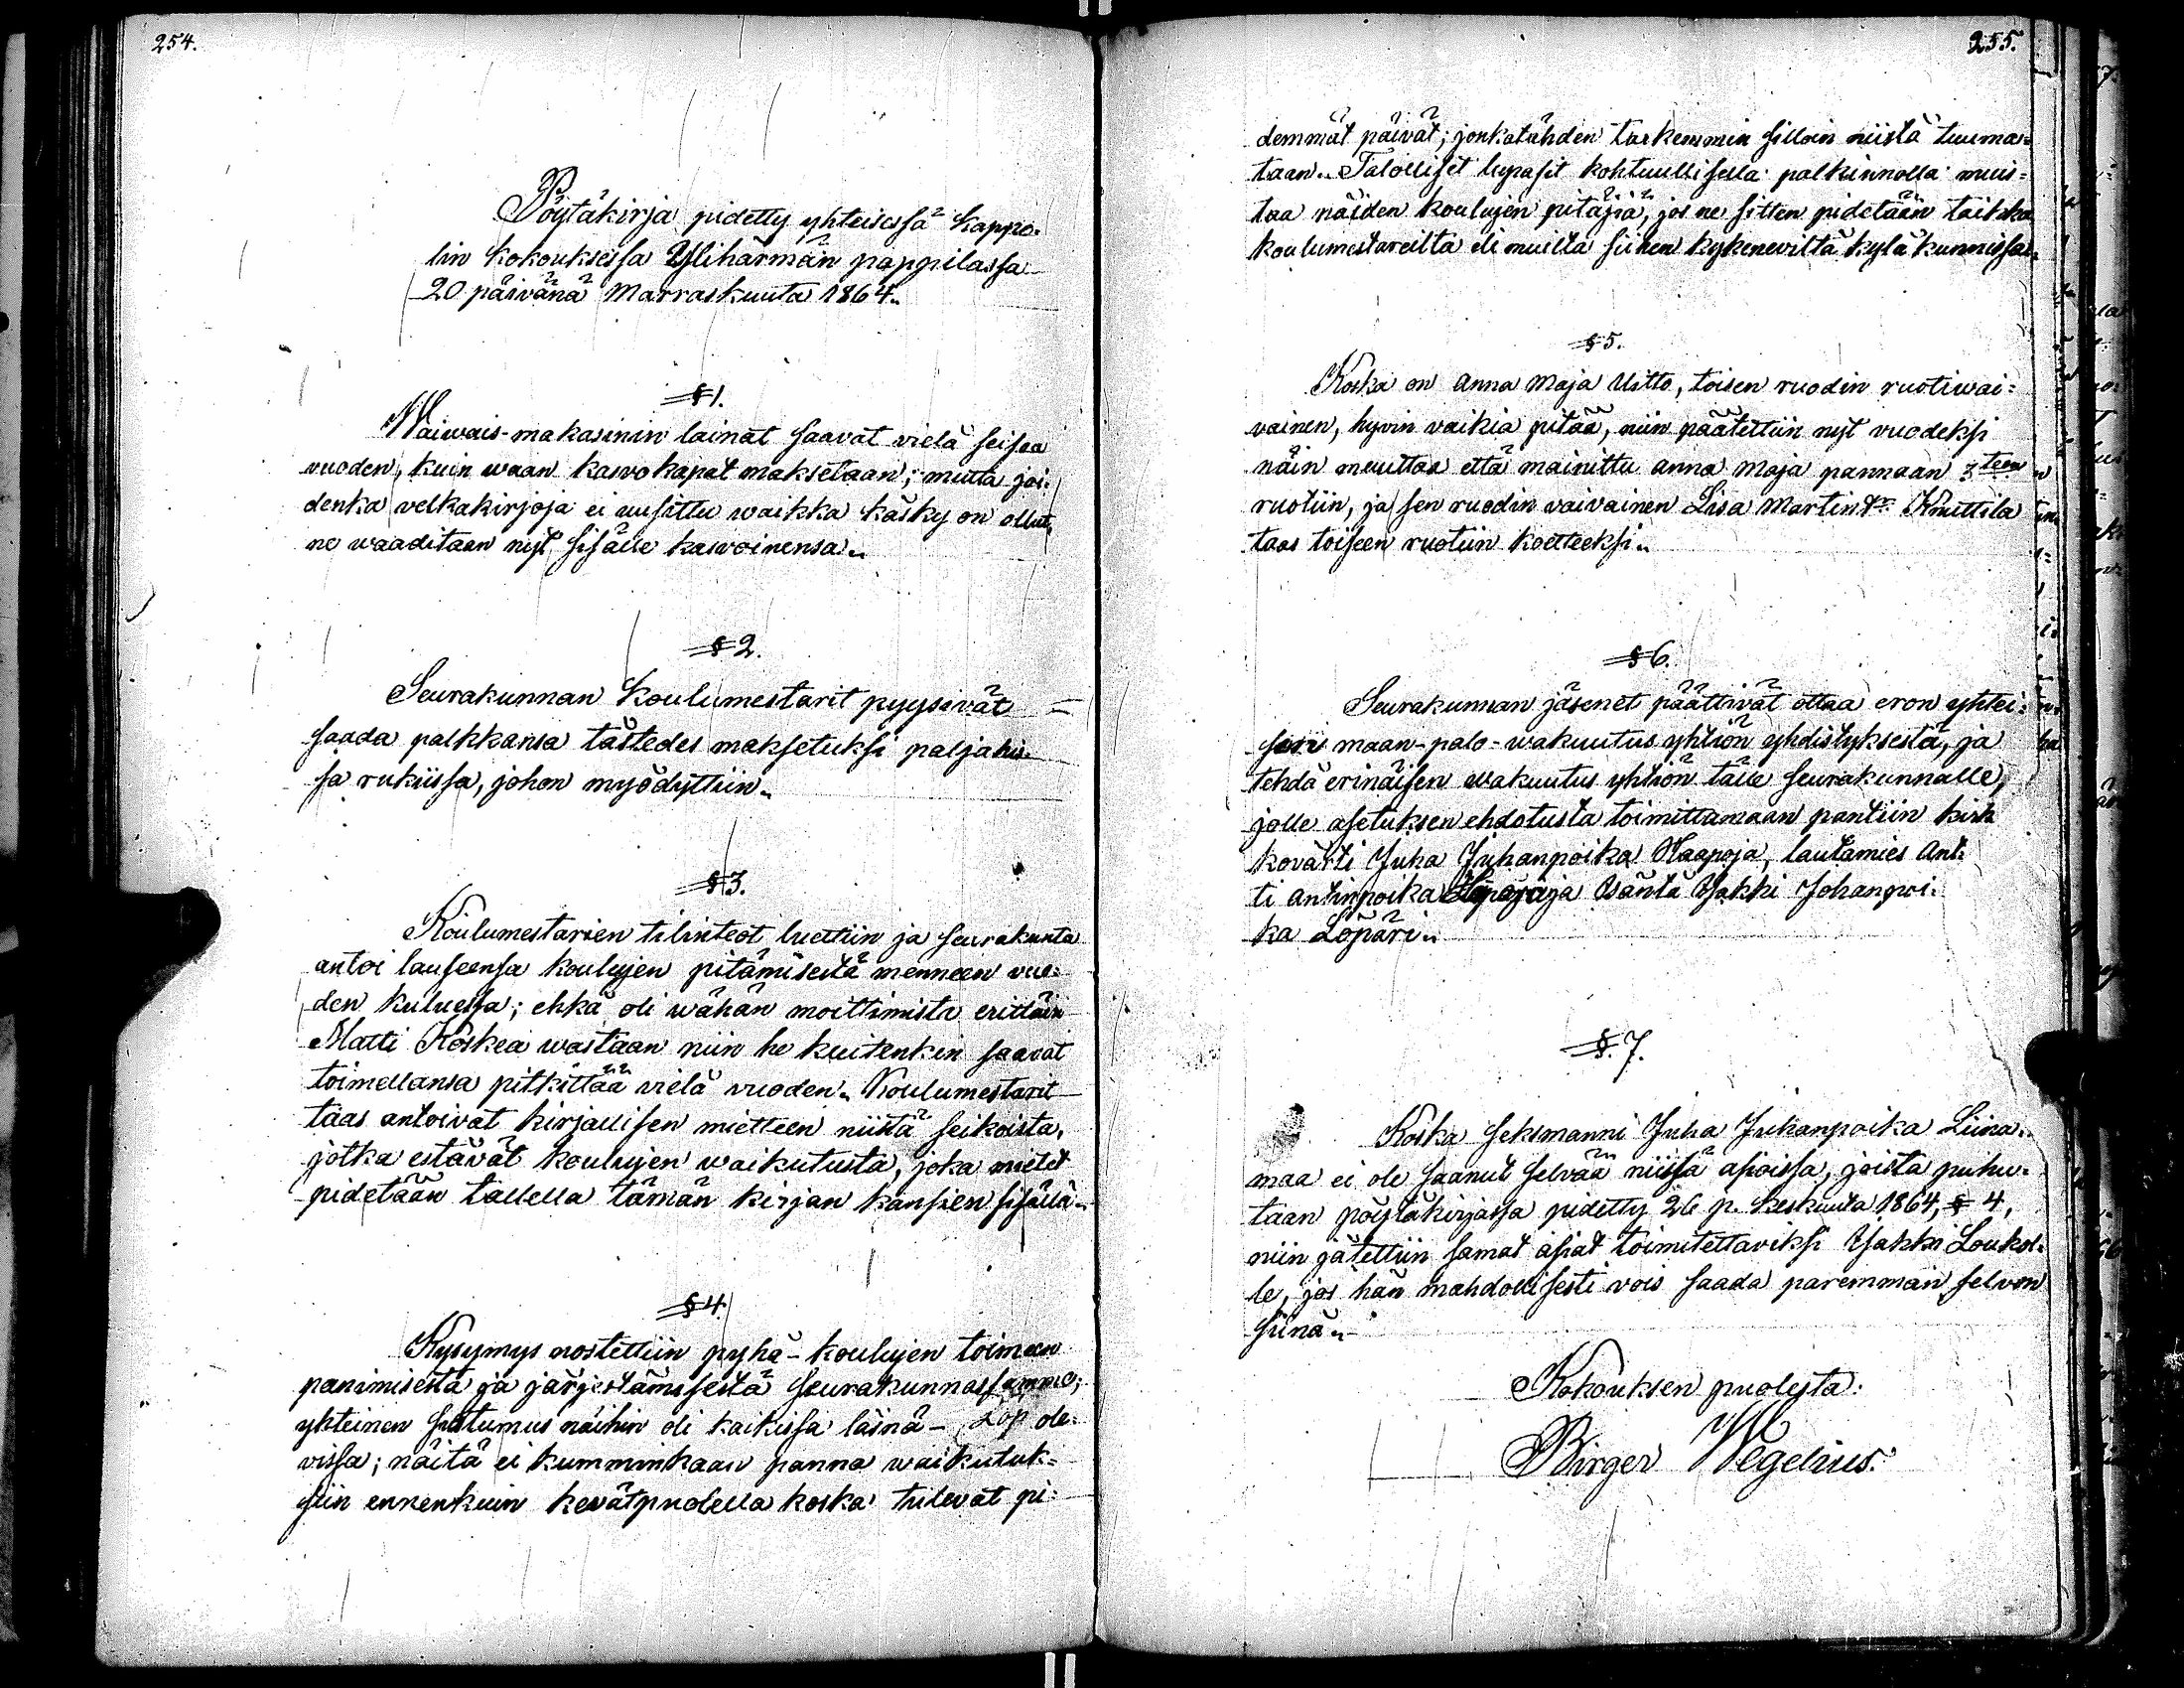 254.
Pöytäkirja pidetty yhteisessä kappe-
lin kokouksessa Ylihärmän pappilassa
20 päivänä Marraskuuta 1864.
§ 1.
Waiwais-makasinin lainat saavat vielä seisoa
vuoden, kuin waan kaswokapat maksetaan; mutta joi-
denka velkakirjoja ei uusittu waikka käsky on ollut,
ne waaditaan nyt sisälle kaswoinensa.
§ 2.
Seurakunnan koulumestarit pyysivät
saada palkkansa tästedes maksetuksi paljahis-
sa rukiissa, johon myödyttiin.
§ 3.
Koulumestarien tilinteot luettiin ja seurakunta
antoi lauseensa koulujen pitämisestä menneen vuo-
den kuluessa; ehkä oli wähän moittimista erittäin
Matti Koskea wastaan niin he kuitenkin saavat
toimellansa pitkittää vielä vuoden. Koulumestarit
taas antoivat kirjallisen mietteen niistä seikoista,
jotka estävät koulujen waikutusta, joka mietet
pidetään tallella tämän kirjan kansien sisällä.
§ 4.
Kysymys nostettiin pyhä-koulujen toimeen
panimisesta ja järjestämisestä seurakunnassamme;
yhteinen sustumus näihin oli kaikissa läsnä- ole-
vissa; näitä ei kumminkaan panna waikutuk-
siin ennenkuin kevätpuolella koska tulevat pi-
255.
demmät päivät; jonkatähden tarkemmin silloin niistä tuuma-
taan. Talolliset lupasit kohtuullisella palkinnolla muis-
taa näiden koulujen pitäjiä, jos ne sitten pidetään taikka
koulumestareilta eli muilta siihen kykeneviltä kyläkunnissa.
§ 5.
Koska on Anna Maja Uitto, toisen ruodin ruotiwai-
vainen, hyvin vaikia pitää, niin päätettiin nyt vuodeksi
näin muuttaa että mainittu Anna Maja pannaan 3:teen
ruotiin, ja sen ruodin vaivainen Lisa Martint:r Knuttila
taas toiseen ruotiin koetteeksi.
§ 6.
Seurakunnan jäsenet päättivät ottaa eron yhtei-
sen maan-palo-wakuutus yhtiön yhdistyksestä, ja
tehdä erinäisen wakuutus yhtiön tälle seurakunnalle,
jolle asetuksen ehdotusta toimittamaan pantiin kirk
kovärti Juha Juhanpoika Haapoja, lautamies Ant-
ti Antinpoika ja Isäntä Jakki Johanpoi-
ka Löpäri.
§. 7.
Koska seksmanni Juha Juhanpoika Liina-
maa ei ole saanut selvää niissä asioissa, joista puhu-
taan pöytäkirjassa pidetty 26 p. keskuuta 1864, § 4,
niin jätettiin samat asiat toimitettaviksi Jakki Loukol-
le, jos hän mahdollisesti vois saada paremman selvon
siinä.
Kokouksen puolesta:
Birger Wegelius.